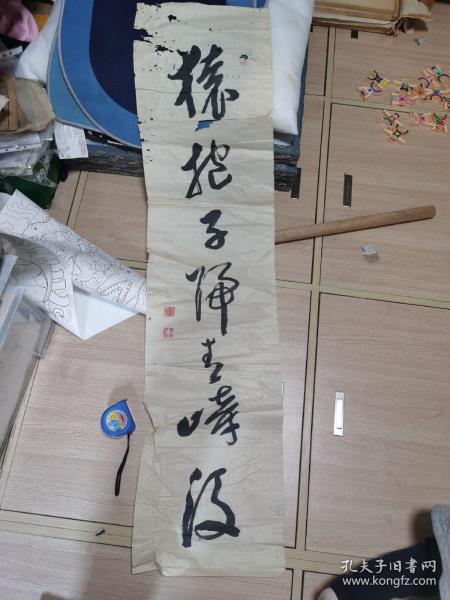 猿抱子歸青嶂後
孔夫子旧书网
www.kongfz.com